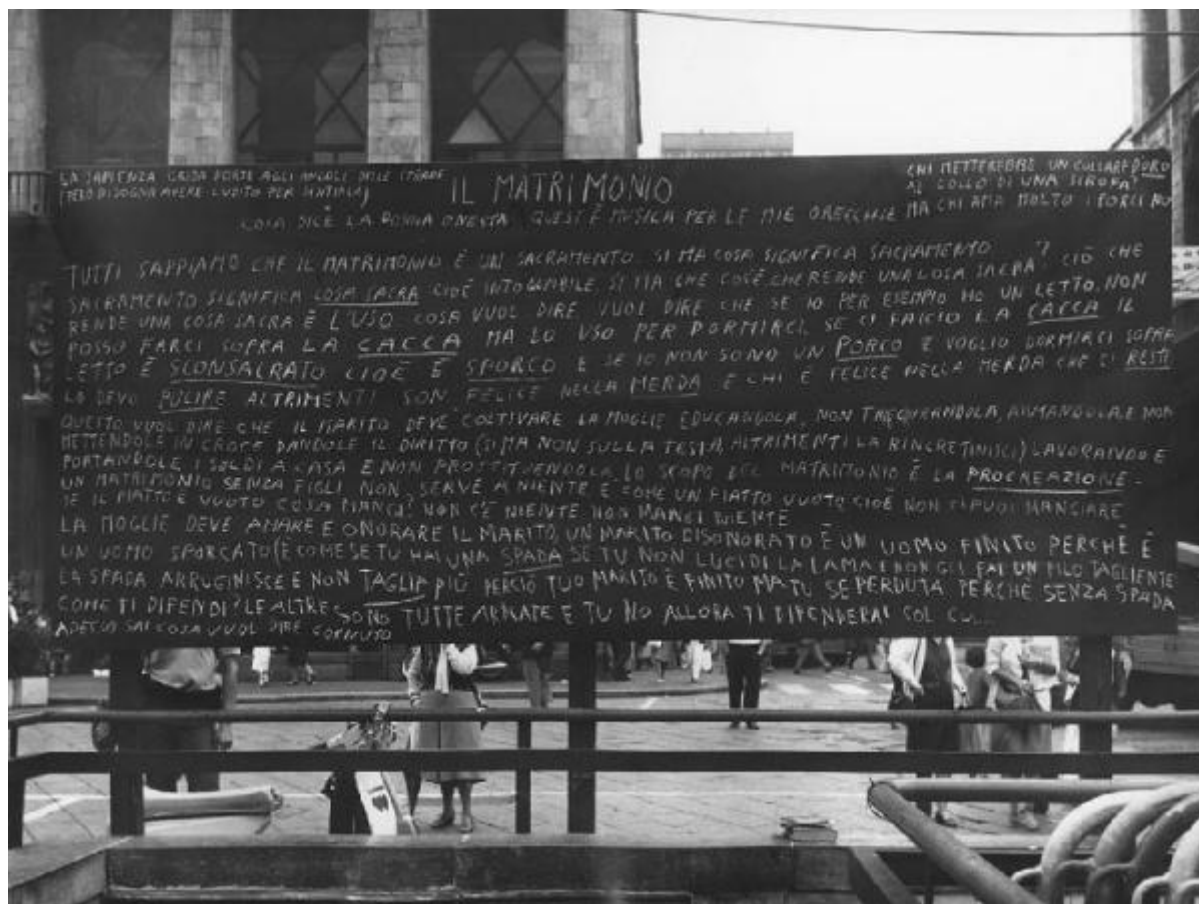 LA SAPIENZA GRIDA FORTE AGLI ANGOLI DELLE STRADE
(PERO BISOGNA AVERE L'UDITO PER SENTIRLA)
IL MATRIMONIO
CHI METTEREBBE UN COLLARE D'ORO
AL COLLO DI UNA SCROFA?
MA CHI AMA MOLTO I PORCI
COSA DICE LA DONNA ONESTA QUEST'È MUSICA PER LE MIE ORECCHIE
TUTTI SAPPIAMO CHE IL MATRIMONIO È UN SACRAMENTO. SI MA COSA SIGNIFICA SACRAMENTO ? CIÒ CHE
SACRAMENTO SIGNIFICA COSA SACRA CIOÈ INTOCCABILE. SI MA CHE COS'È CHE RENDE UNA COSA SACRA
RENDE UNA COSA SACRA È L'USO COSA VUOL DIRE VUOL DIRE CHE SE IO PER ESEMPIO HO UN LETTO, NON
POSSO FARCI SOPRA LA CACCA MA LO USO PER DORMIRCI. SE CI FACCIO LA CACCA IL
LETTO È SCONSACRATO CIOÈ È SPORCO E SE IO NON SONO UN PORCO E VOGLIO DORMIRCI SOPRA
LO DEVO PULIRE ALTRIMENTI SON FELICE NELLA MERDA E CHI È FELICE NELLA MERDA CHE CI RESTI
QUESTO VUOL DIRE CHE IL MARITO DEVE COLTIVARE LA MOGLIE EDUCANDOLA, NON AIUTANDOLA, E NON
METTENDOLE IN CROCE DANDOLE IL DIRITTO (SI MA NON SULLA TESTA, ALTRIMENTI LA RINCRETINISCI) LAVORANDO E
PORTANDOLE I SOLDI A CASA E NON PROSTITUENDOLA. LO SCOPO DEL MATRIMONIO È LA PROCREAZIONE -
UN MATRIMONIO SENZA FIGLI NON SERVE A NIENTE È COME UN PIATTO VUOTO CIOÈ NON CI PUOI MANGIARE
SE IL PIATTO È VUOTO COSA MANGI? NON C'È NIENTE NON MANGI NIENTE
LA MOGLIE DEVE AMARE E ONORARE IL MARITO, UN MARITO DISONORATO È UN UOMO FINITO PERCHÈ È
UN UOMO SPORCATO (È COME SE TU HAI UNA SPADA SE TU NON LUCIDI LA LAMA E NON GLI FAI UN FILO TAGLIENTE
LA SPADA ARRUGINISCE E NON TAGLIA PIÙ PERCIÒ TUO MARITO È FINITO MA TU SE PERDUTA PERCHÈ SENZA SPADA
COME TI DIFENDI? LE ALTRE SONO TUTTE ARMATE E TU NO ALLORA TI DIFENDERAI COL CUL...
ADESSO SAI COSA VUOL DIRE CORNUTO